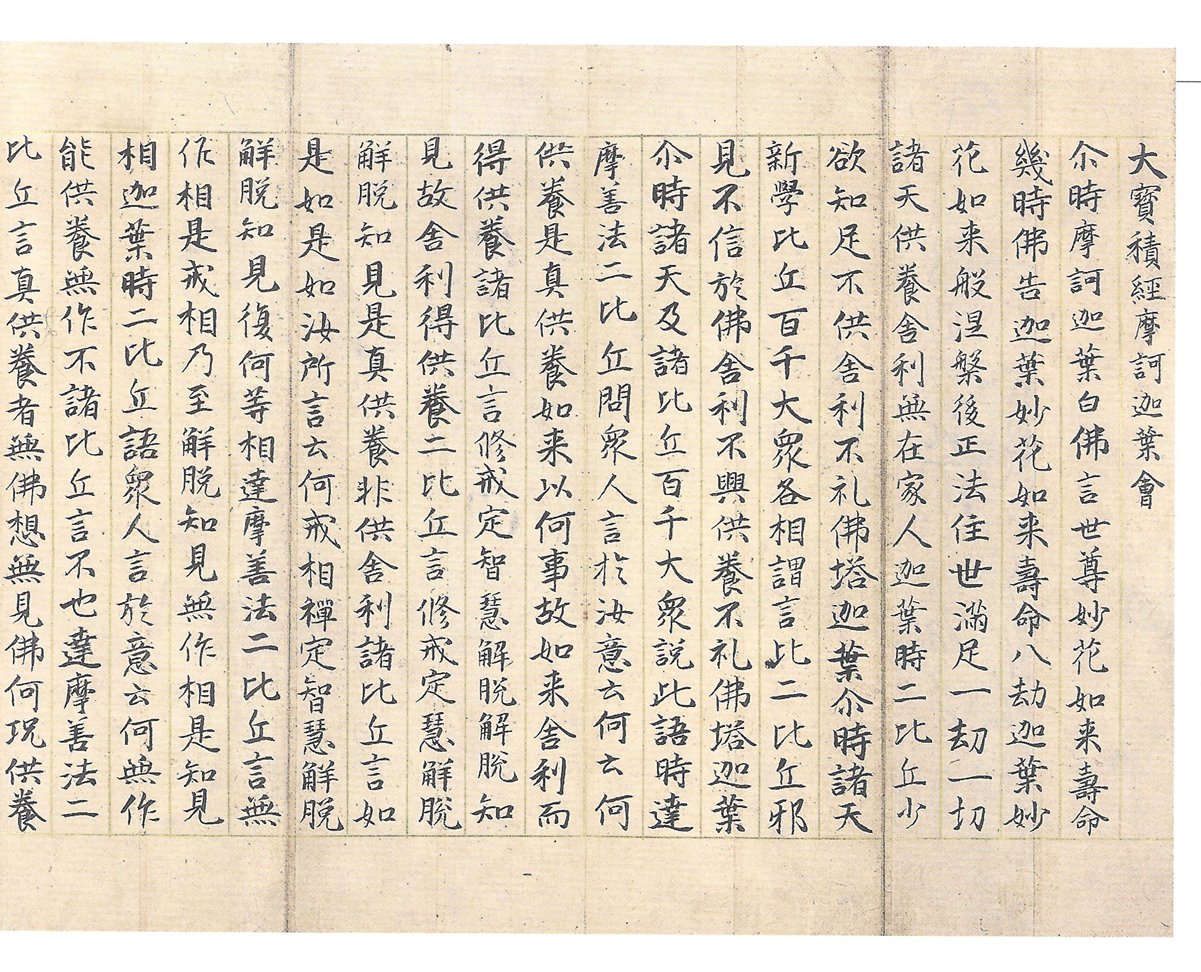 大寶積經摩訶迦葉會
尒時摩訶迦葉白佛言世尊妙花如来壽命
幾時佛告迦葉妙花如来壽命八劫迦葉妙
花如来般涅槃後正法住世滿足一劫一切
諸天供養舍利無在家人迦葉時二比丘少
欲知足不供舍利不礼佛塔迦葉尒時諸天
新學比丘百千大眾各相謂言此二比丘邪
見不信於佛舍利不興供養不礼佛塔迦葉
尒時諸天及諸比丘百千大眾說此語時達
摩善法二比丘問眾人言於汝意云何云何
供養是真供養如来以何事故如来舍利而
得供養諸比丘言修戒定智慧解脫解脫知
見故舍利得供養二比丘言修戒定慧解脫
解脫知見是真供養非供舍利諸比丘言如
是如是如汝所言云何戒相禪定智慧解脫
解脫知見復何等相達摩善法二比丘言無
作相是戒相乃至解脫知見無作相是知見
相迦葉時二比丘語眾人言於意云何無作
能供養無作不諸比丘言不也達摩善法二
比丘言真供養者無佛想無見佛何況供養